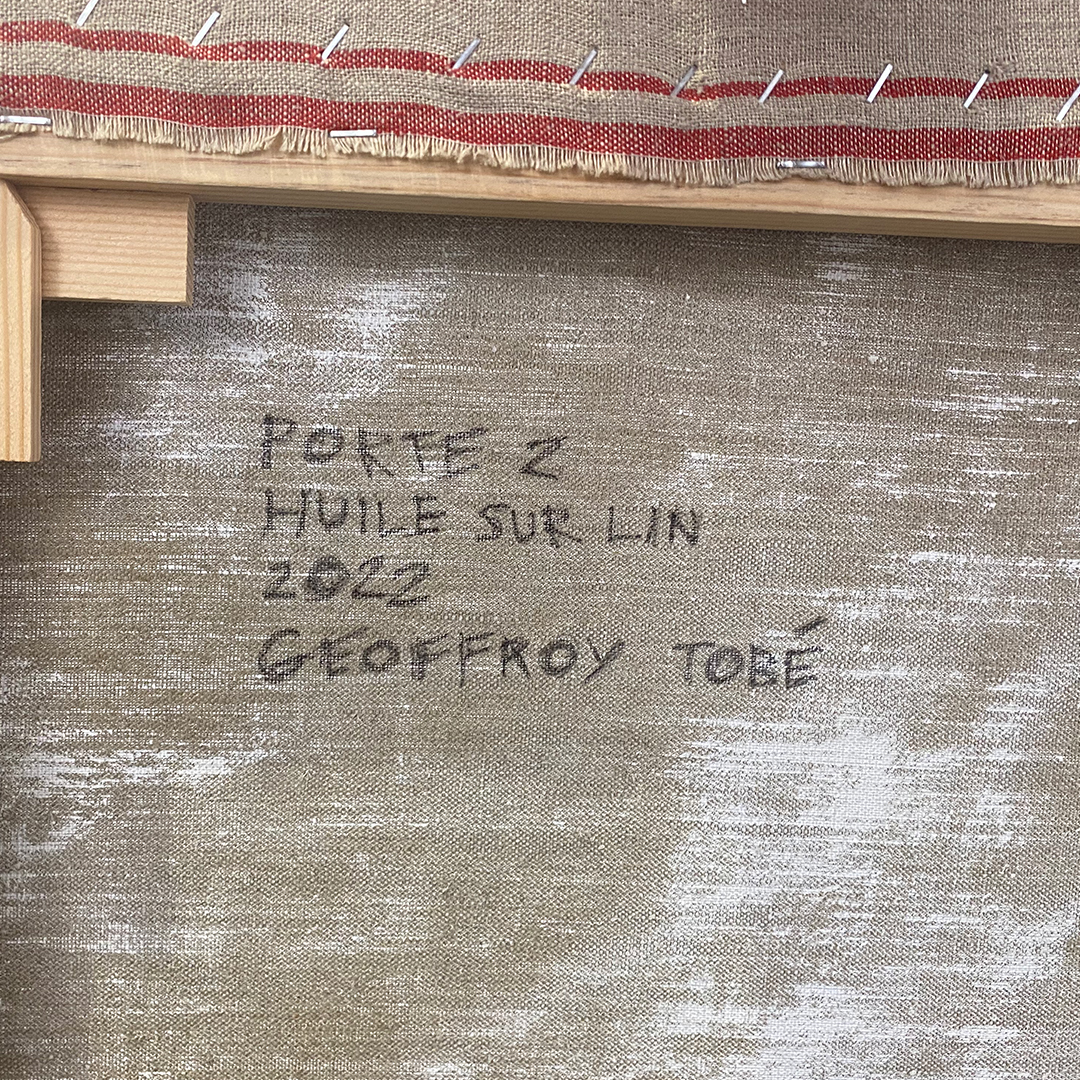 PORTE 2
HUILE SUR LIN
2022
GEOFFROY TOBÉ